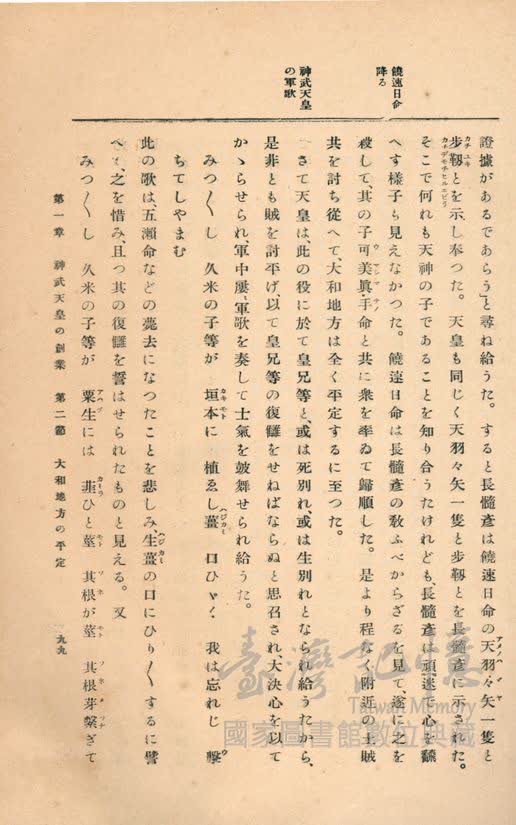 饒速日命
降る
神武天皇
の軍歌
證據があるであらう」と尋ね給うた。すると長髓彥は饒速日命の天羽々矢一隻と
步靱とを示し奉つた。天皇も同じく天羽々矢一隻と步靱とを長髓彥に示された。
そこで何れも天神の子であることを知り合うたけれども、長髓彥は頑迷で心を飜
へす樣子も見えなかつた。饒速日命は長髓彥の敎ふべからざるを見て、遂に之を
殺して、其の子可美眞手命と共に衆を率ゐて歸順した。是より程なく附近の土賊
共を討ち從へて、大和地方は全く平定するに至つた。
さて天皇は、此の役に於て皇兄等と、或は死別れ、或は生別れとなられ給うたから、
是非とも賊を討平げ、以て皇兄等の復讎をせねばならぬと思召され大決心を以て
かゝらせられ、軍中屢〻軍歌を奏して士氣を鼓舞せられ給うた。
みつ〱し 久米の子等が 垣本に 植ゑし薑 口ひゞく 我は忘れじ 擊
ちてしやまむ
此の歌は、五瀨命などの薨去になつたことを悲しみ、生薑の口にひり〱するに譬
へて、之を惜み、且つ其の復讎を誓はせられたものと見える。又
みつ〱し 久米の子等が 粟生には 韮ひと莖 其根が莖 其根芽繫ぎて
第一章 神武天皇の創業 第二節 大和地方の平定
一九九
臺灣記憶
Taiwan Memory
國家圖書館數位典藏